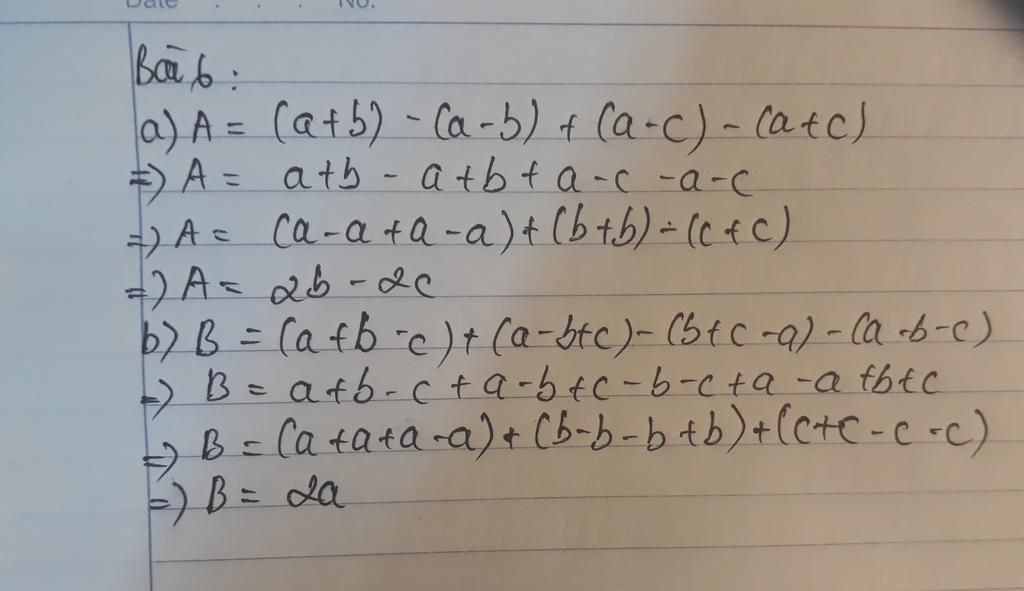 Date . . . No.
Bài 6 :
a) A = (a+b) - (a-b) + (a-c) - (a+c)
=> A = a+b - a+b + a-c -a-c
=> A = (a-a+a-a)+(b+b)-(c+c)
=> A = 2b - 2c
b) B = (a+b-c)+(a-b+c)-(b+c-a)-(a-b-c)
=> B = a+b-c+a-b+c-b-c+a-a+b+c
=> B = (a+a+a-a)+(b-b-b+b)+(c+c-c-c)
=> B = 2a